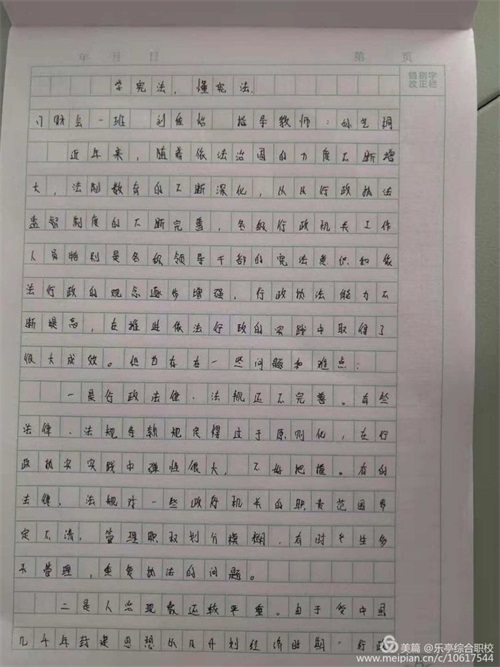 年 月 日
第 页
错别字
改正栏
学宪法，懂宪法
财会一班 指导教师：
近年来，随着依法治国的力度不断增
大，法制教育的不断深化，以及行政执法
监督制度的不断完善，各级行政机关工作
人员特别是各级领导干部的宪法意识和依
法行政的观念逐步增强，行政执法能力不
断提高，在推进依法行政的实践中取得了
很大成效。但也存在一些问题和难点：
一是行政法律、法规还不完善。有些
法律、法规条款规定得过于原则化，在行
政机关实践中弹性很大。不好把握。有的
法律、法规对一些政府机关的职责范围界
定不清，管理职权划分模糊，有时产生多
不管理，重复执法的问题。
二是人治现象还较严重。由于受中国
几千年封建思想以及计划经济时期
美篇 @乐亭综合职校
www.meipian.cn/c/10617544